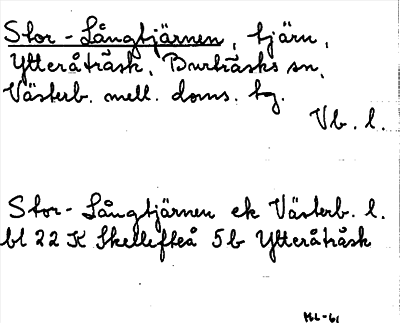 Stor-Långtjärnen, tjärn,
Ytteråträsk, Burträsks sn,
Västerb. mell. doms. tg.
Vb. l.
Stor-Långtjärnen ek Västerb. l.
bl 22 K Skellefteå 5b Ytteråträsk
HL-61